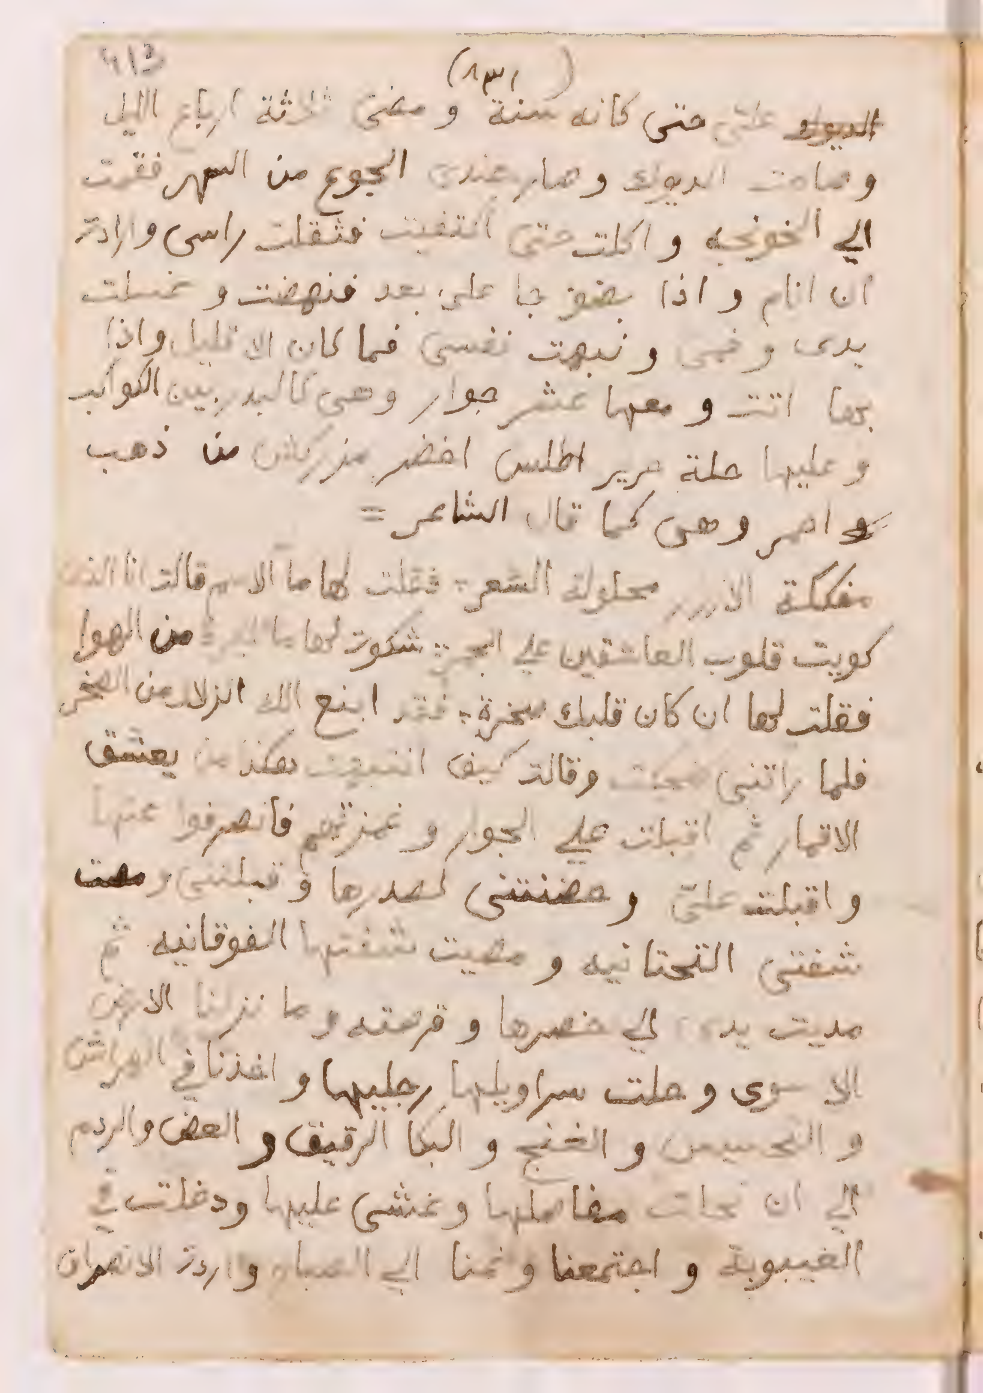 ٤١٣
(٨٣١)
علي حتى كانه سنة و مضى ثلاثة ارباع الليل
و صاحت الديوك و صار عندي الجوع من السهر فقمت
الي الخونجه و اكلت حتى اكتفيت فثقلت راسى و اردت
ان انام و اذا بضو جا على بعد فنهضت و غسلت
يدى و فمى و نبهت نفسى فما كان الا قليل و اذا
بها اتت و معها عشر جوار و هى كالبدر بين الكواكب
و عليها حلة حرير اطلس اخضر مزركش من ذهب
احمر و هى كما قال الشاعر =
مفككة الازرار محلولة الشعر فقلت لها ما الاسم قالت انا الذى
كويت قلوب العاشقين علي الجمر شكوت لها ما من الهوا
فقلت لها ان كان قلبك صخرة فقد انبع الله الزلال من الصخر
فلما راتنى ضحكت و قالت كيف انتبهت هكذا من يعشق
الاقمار ثم اقبلت علي الجوار و غمزتهم فانصرفوا عنها
و اقبلت عليّ و حضنتنى لصدرها و قبلتنى و مصت
شفتى التحتانيه و مصيت شفتها الفوقانيه ثم
مديت يدى الي خصرها و قرصته و ما نزلنا الارض
الا سوى و حلت سراويلها رجليها و اخذنا في الهراش
و و الغنج و البكا الرقيق و العض و
الي ان مفاصلها و غشى عليها و دخلت في
الغيبوبة و اجتمعنا و نمنا الي الصباح و اردت الانصراف